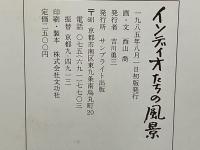 インディオたちの風景
一九八五年八月一日初版発行
画・文 西山 喬
発行者 吉川勇三
発行所 サンブライト出版
〒601 京都市南区東九条南烏丸町20
電話 〇七五-六九一-七七三〇
振替 京都九-四九一三
印刷・製本 株式会社文功社
定価 二五〇〇円